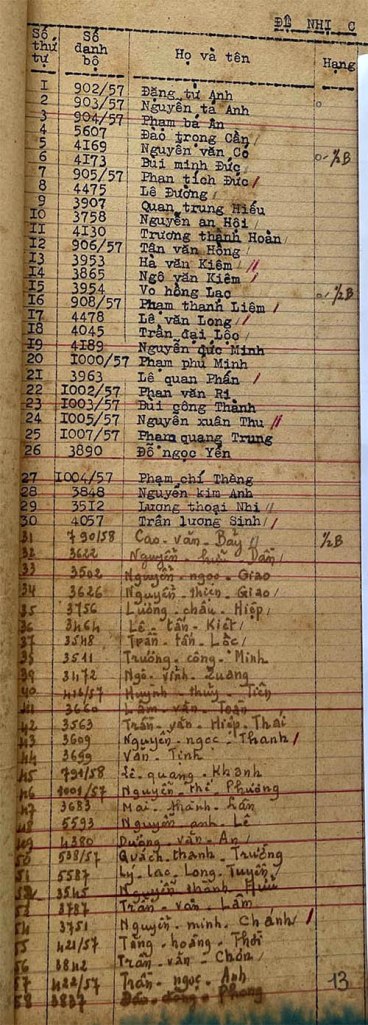 ĐỆ NHỊ C
Số thứ tự Số danh bộ Họ và tên Hạng
1 902/57 Đặng tử Anh
2 903/57 Nguyễn tá Anh
3 904/57 Phạm bá Ân
4 5607 Đào trọng Cần
5 4169 Nguyễn văn Có
6 4173 Bùi minh Đức ½B
7 905/57 Phan tích Đức
8 4475 Lê Đường
9 3907 Quan trung Hiếu
10 3758 Nguyễn an Hội
11 4130 Trương thành Hoàn
12 906/57 Tân văn Hồng
13 3953 Hà văn Kiêm
14 3865 Ngô văn Kiêm
15 3954 Vo hồng Lạc ½B
16 908/57 Phạm thanh Liêm
17 4478 Lê văn Long
18 4045 Trần đại Lộc
19 4189 Nguyễn đức Minh
20 1000/57 Phạm phú Minh
21 3963 Lê quan Phấn
22 1002/57 Phan văn Ri
23 1003/57 Bùi công Thành
24 1005/57 Nguyễn xuân Thu
25 1007/57 Phạm quang Trung
26 3890 Đỗ ngọc Yến
27 1004/57 Phạm chí Thèng
28 3848 Nguyễn kim Anh
29 3512 Lương thoại Nhi
30 4057 Trần lương Sinh
31 790/58 Cao - văn - Bảy ½B
32 3622 Nguyễn - hữu - Dần
33 3502 Nguyễn - ngọc - Giao
34 3626 Nguyễn - thiện - Giao
35 3756 Lương - châu - Hiệp
36 3464 Lê - tấn - Kiết
37 3548 Trần - tấn - Lộc
38 3511 Trương - công - Minh
39 3472 Ngô - vĩnh - Quang
40 Huỳnh - thủy - Tiên
41 3660 Lâm - văn - Toàn
42 3563 Trần - văn - Hiệp - Thái
43 3609 Nguyễn - ngọc - Thanh
44 3699 Văn - Tịnh
45 791/58 Lê - quang - Khanh
46 1001/57 Nguyễn - thế Phương
47 3683 Mai - thành - Lân
48 5593 Nguyễn - anh - Lê
49 4380 Dương - văn - An
50 538/57 Quách - thanh - Trường
51 5587 Lý - lạc - Long - Tuyền
52 3545 Nguyễn thành Hữu
53 3787 Trần - văn - Lâm
54 3751 Nguyễn - minh - Chánh
55 421/57 Tăng - hoàng - Thới
56 3842 Trần - văn - Chón
57 422/57 Trần - ngọc - Anh 13
58 3837 Phong